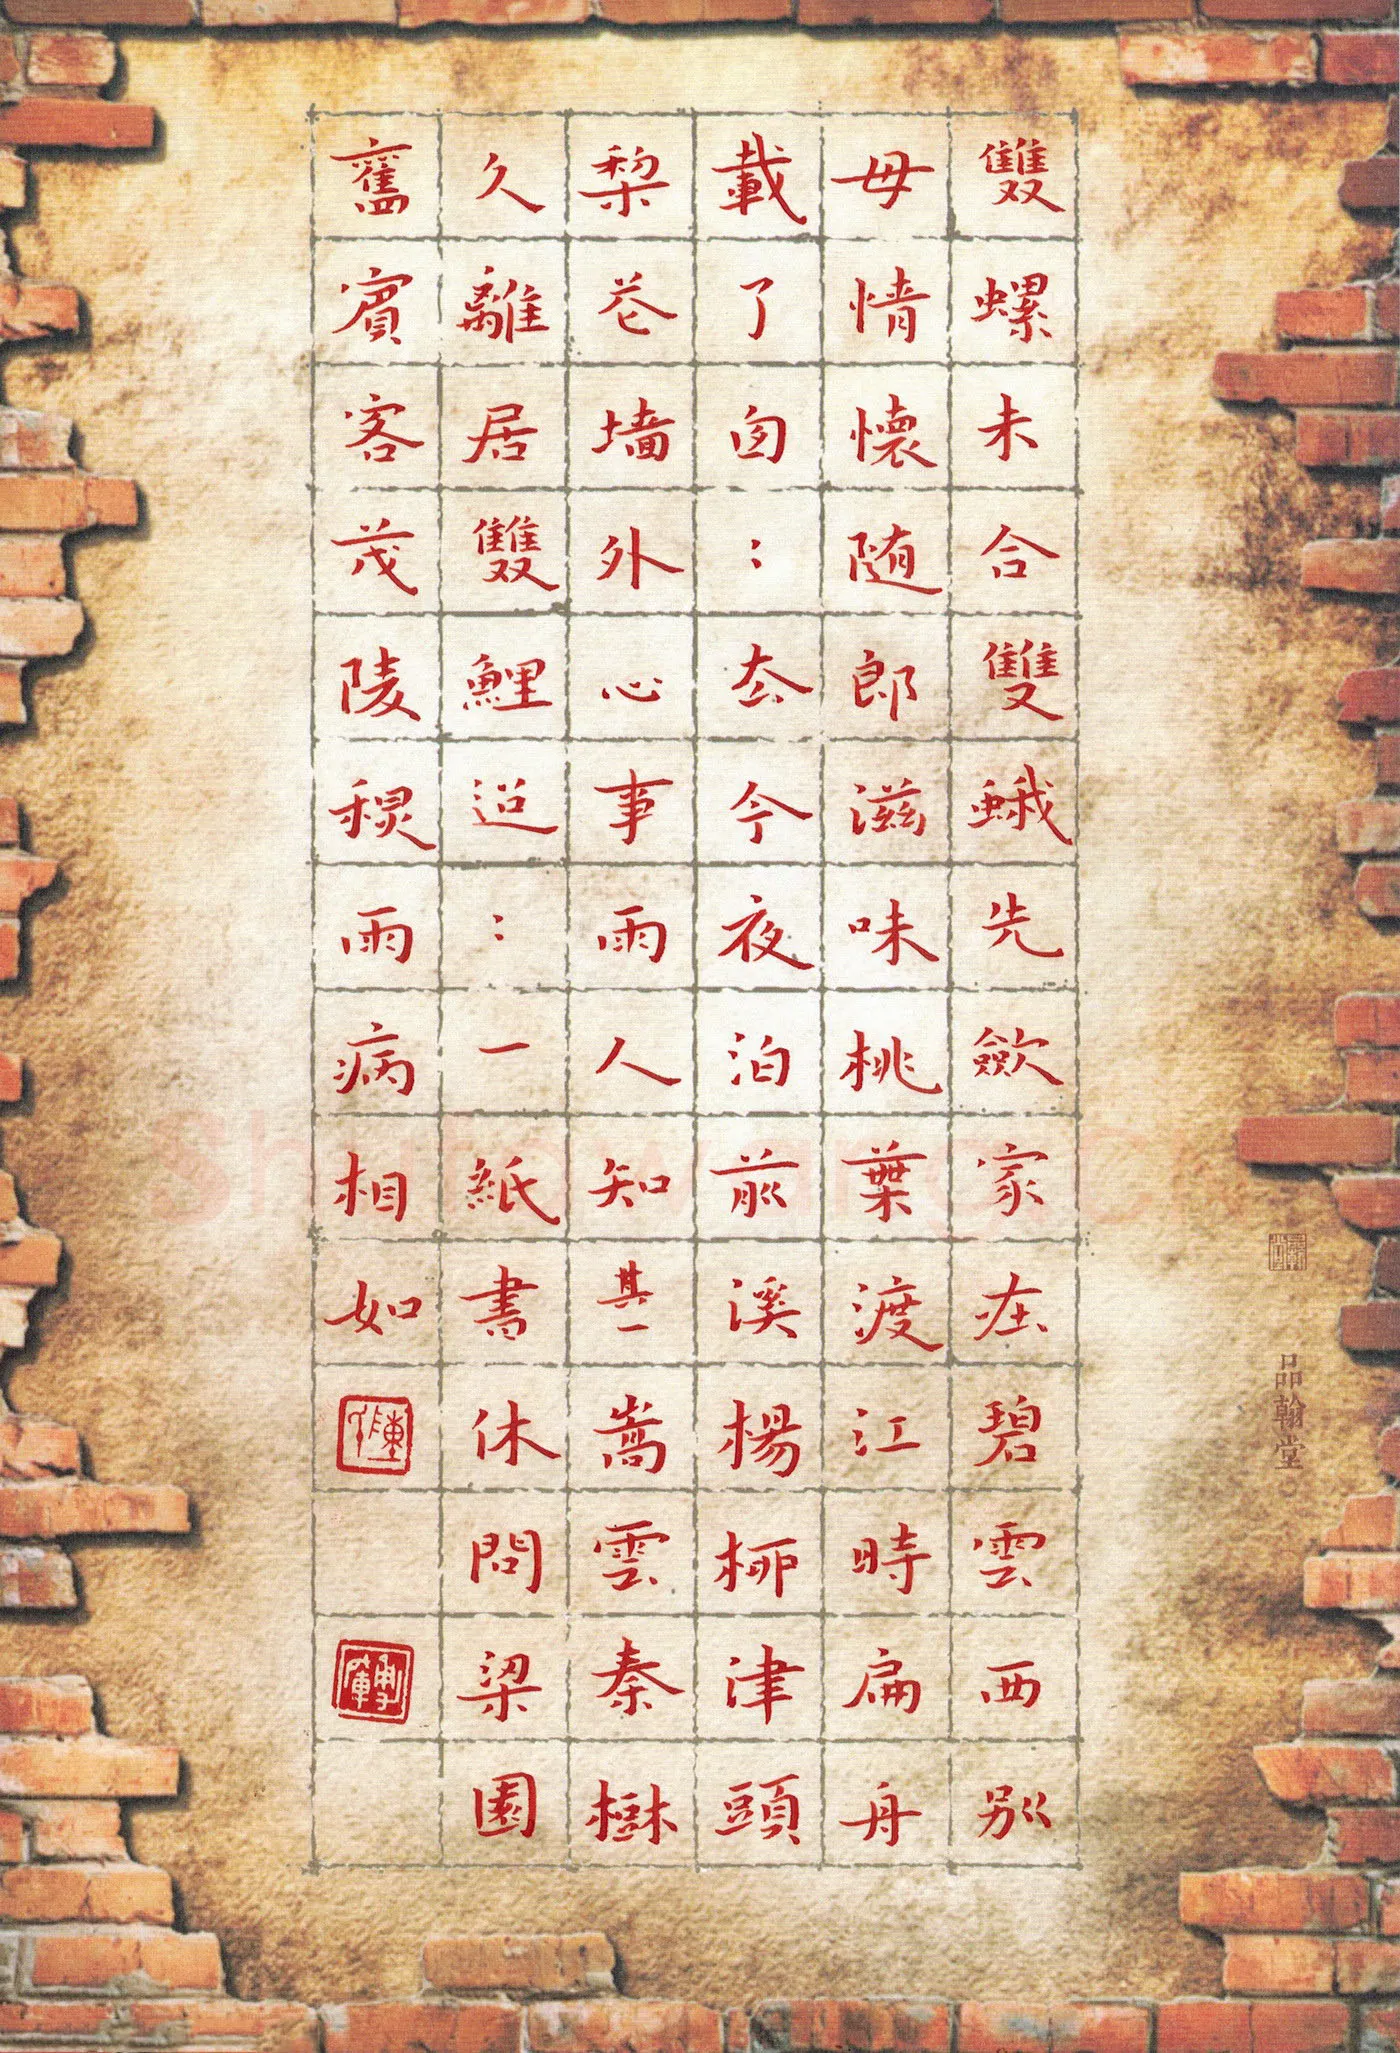 雙螺未合雙蛾先斂家在碧雲西別
母情懷隨郎滋味桃葉渡江時扁舟
載了匆〻去今夜泊前溪楊柳津頭
梨花墻外心事雨人知其一嵩雲秦樹
久離居雙鯉迢〻一紙書休問梁園
舊賓客茂陵秋雨病相如
品翰堂